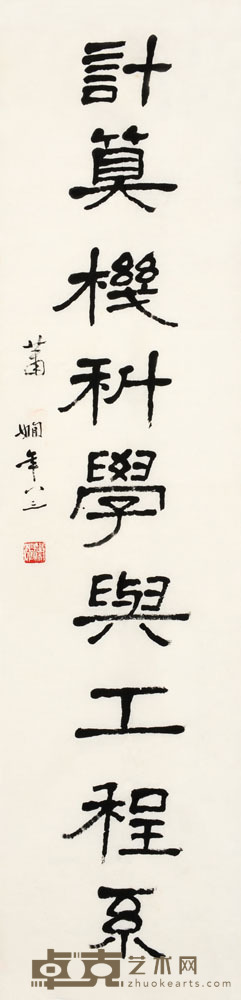 計算機科學與工程系
蕭嫻年八三
卓克艺术网
www.zhuokearts.com